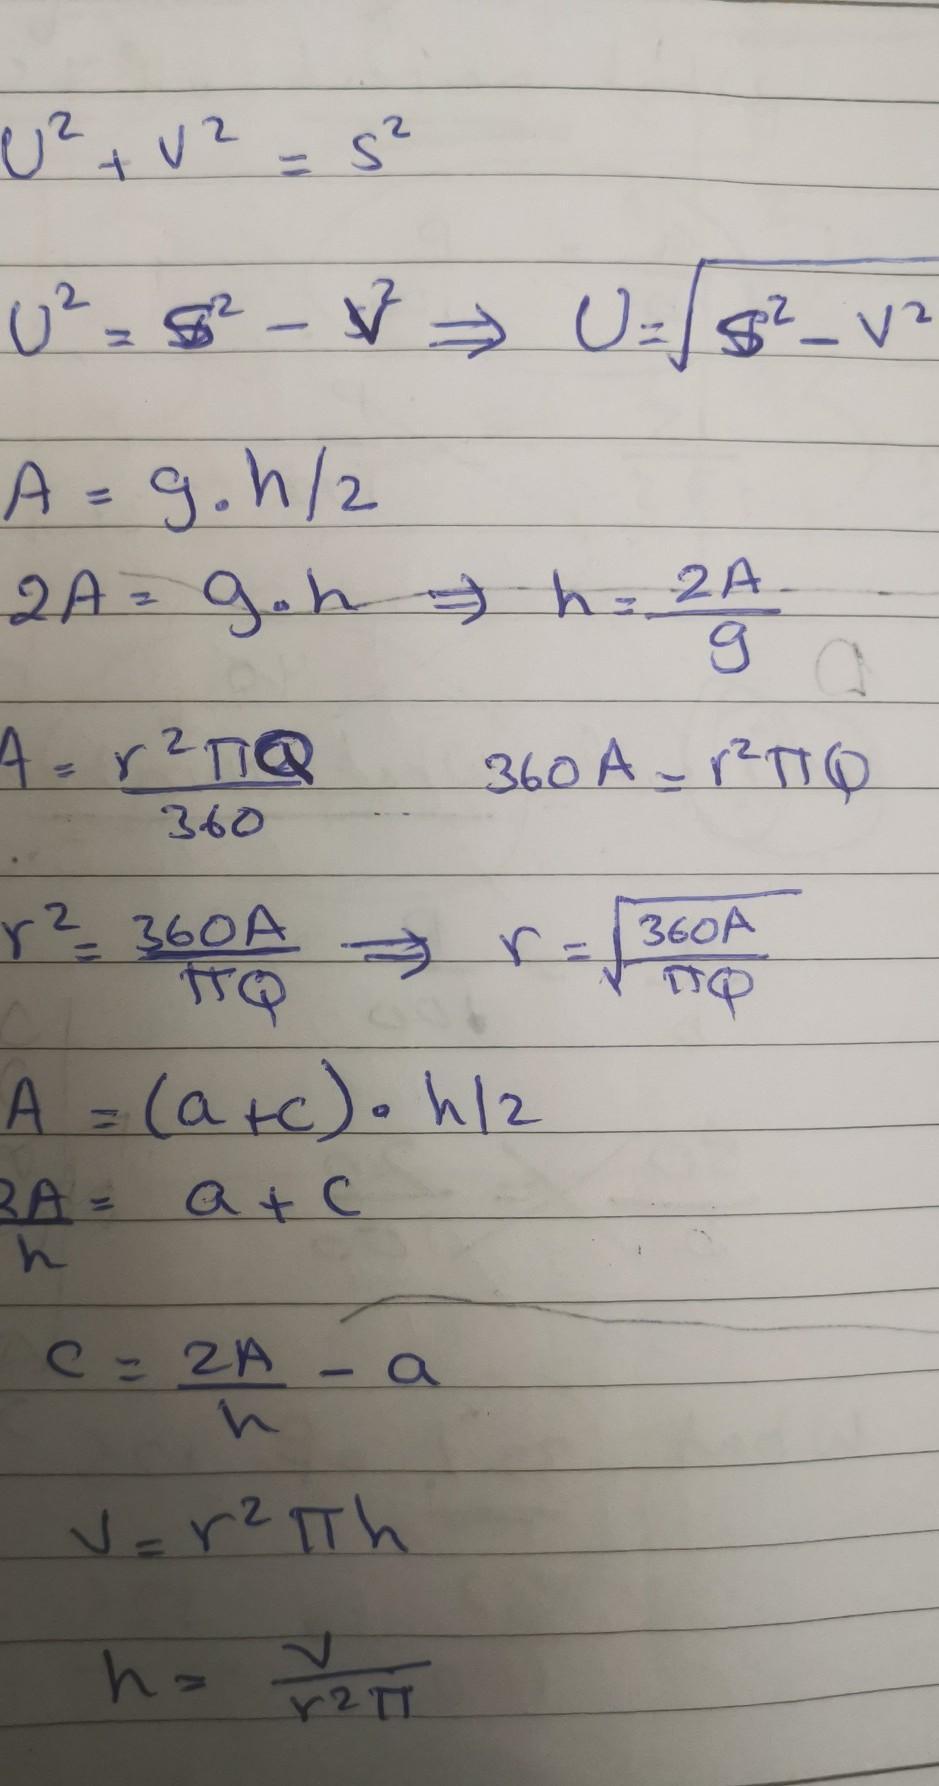 U² + V² = S²
U² = S² - V² ⇒ U = √(S² - V²)
A = g.h/2
2A = g.h ⇒ h = 2A/g
A = r²πQ/360 360A = r²πφ
r² = 360A/πφ ⇒ r = √(360A/πφ)
A = (a+c).h/2
2A/h = a + c
c = 2A/h - a
V = r²πh
h = V/r²π